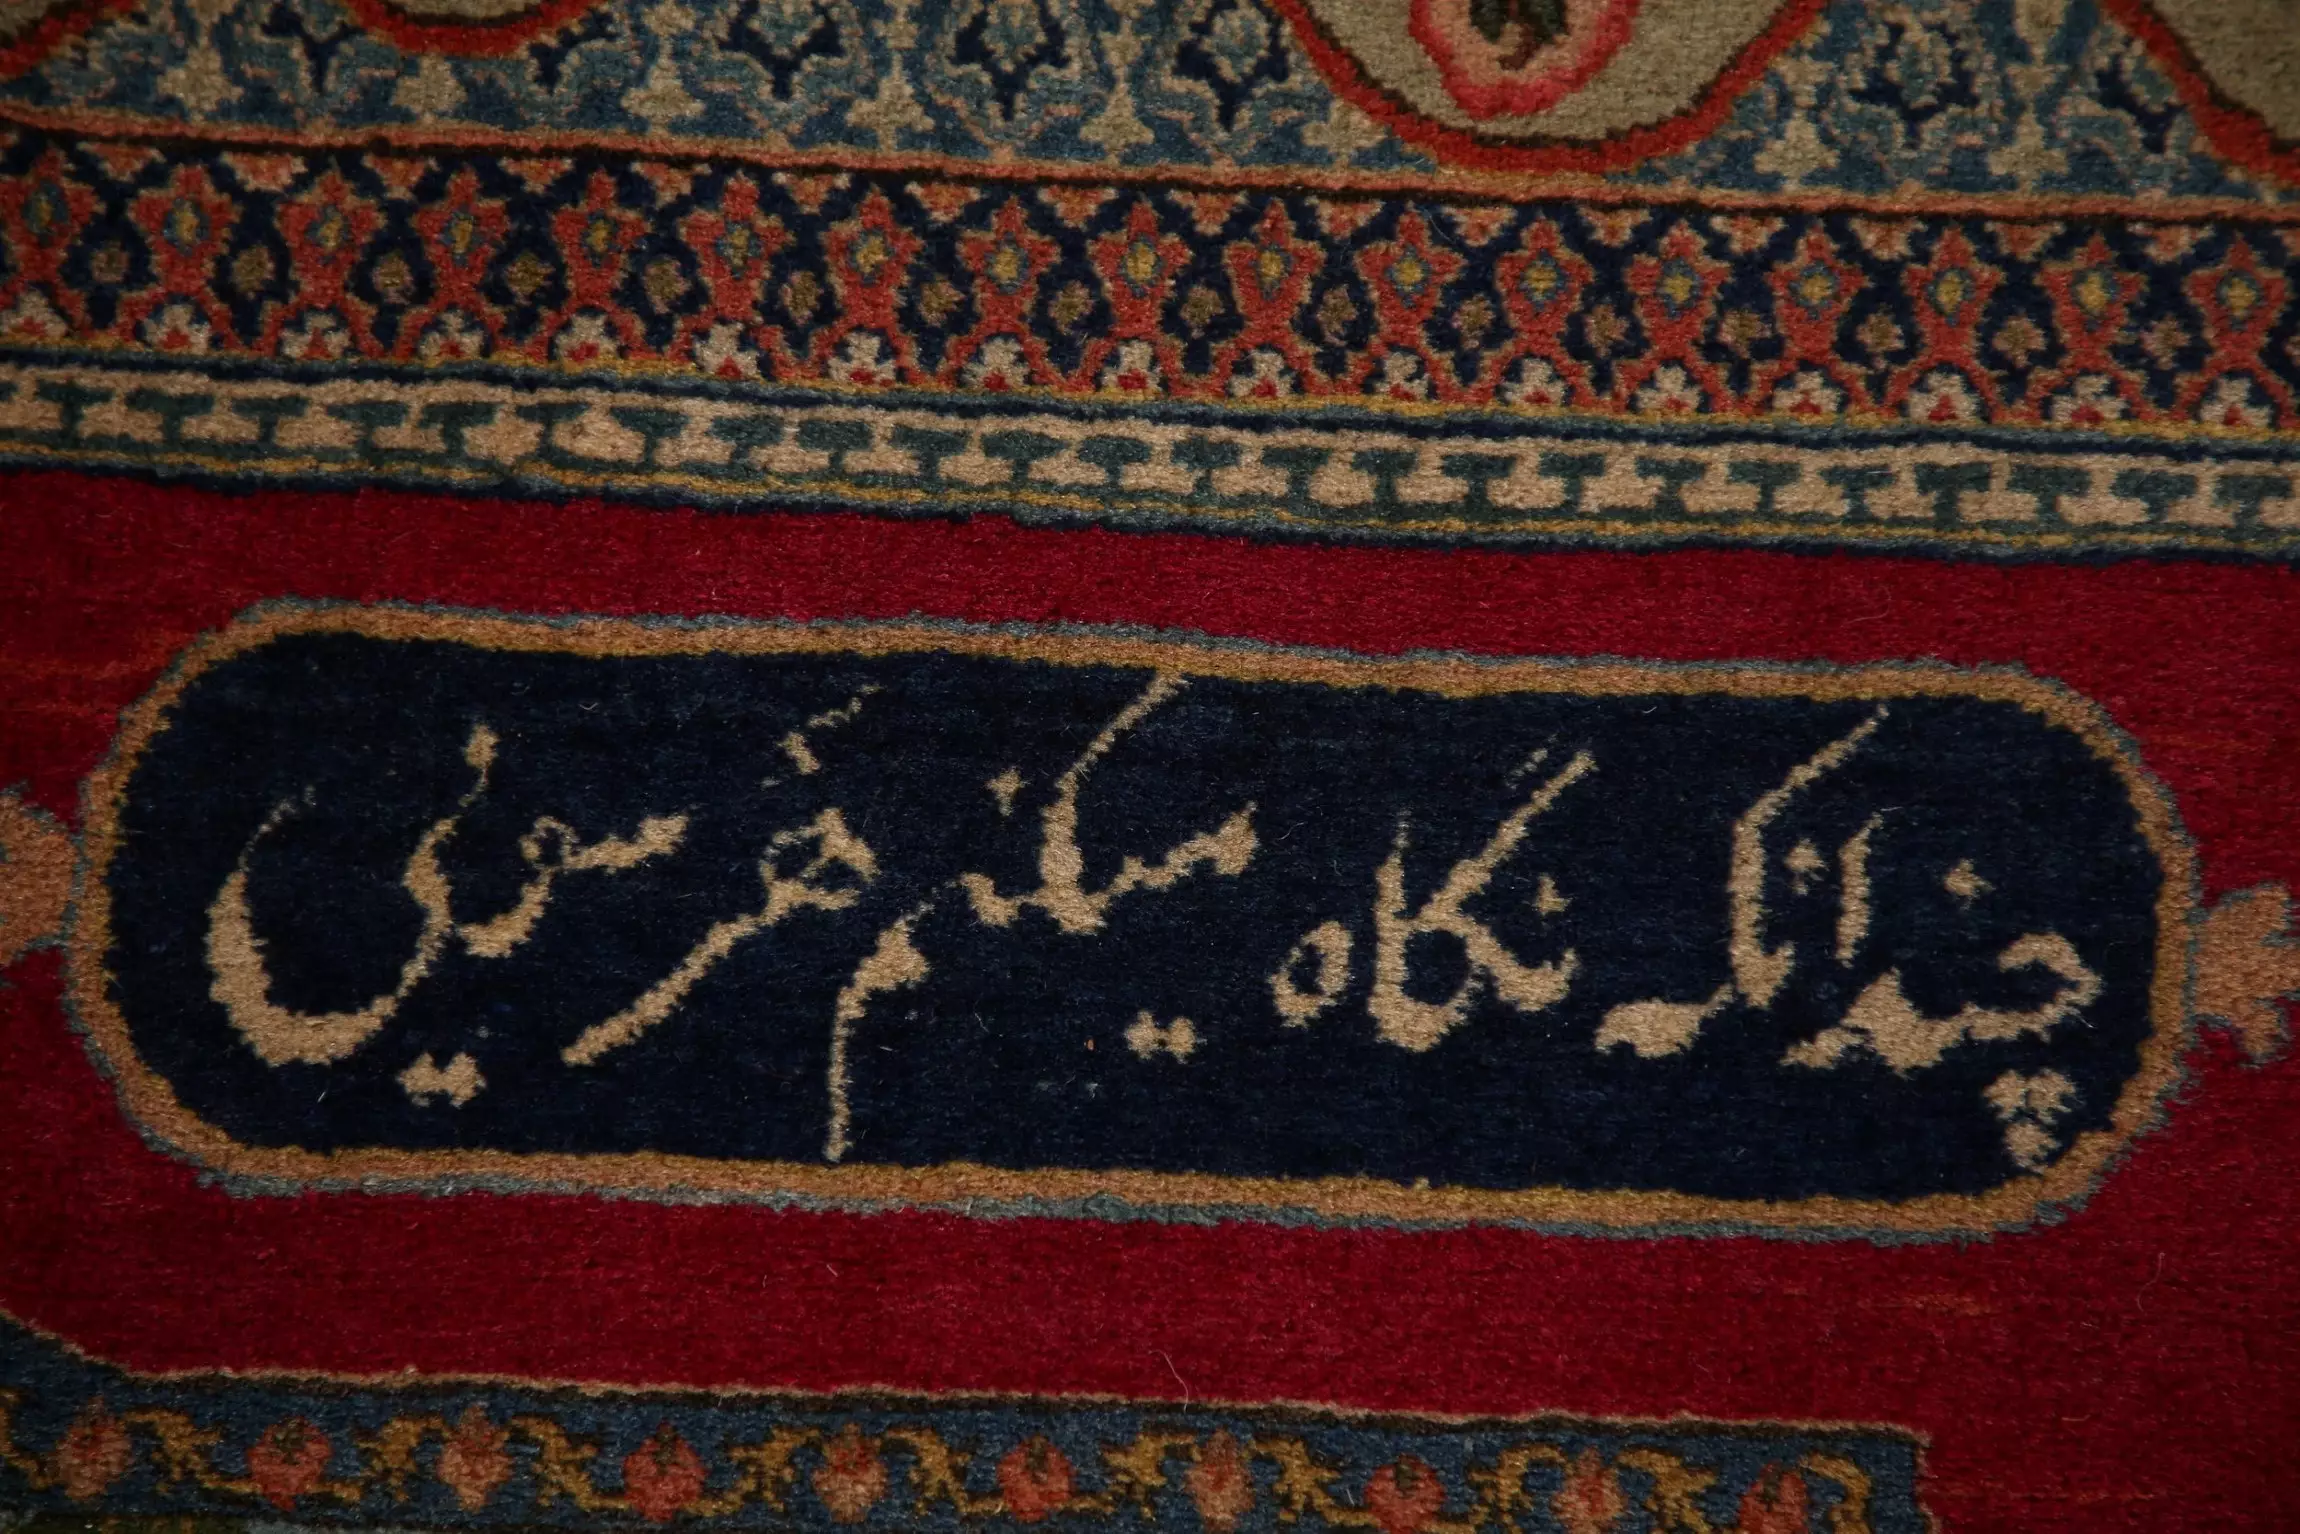 چندانکه نگاه میکنم هر سویی